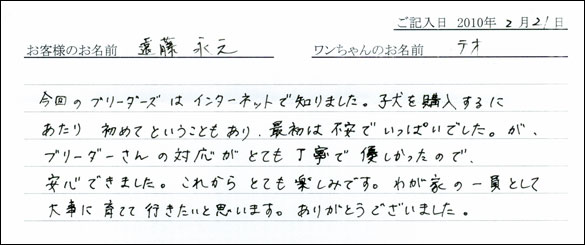 ご記入日 2010年 2月21日
お客様のお名前 遠藤 永元 ワンちゃんのお名前 テオ
今回のブリーダーズはインターネットで知りました。子犬を購入するに
あたり 初めてということもあり、最初は不安でいっぱいでした。が、
ブリーダーさんの対応がとても丁寧で優しかったので、
安心できました。これからとても楽しみです。わが家の一員として
大事に育てて行きたいと思います。ありがとうございました。